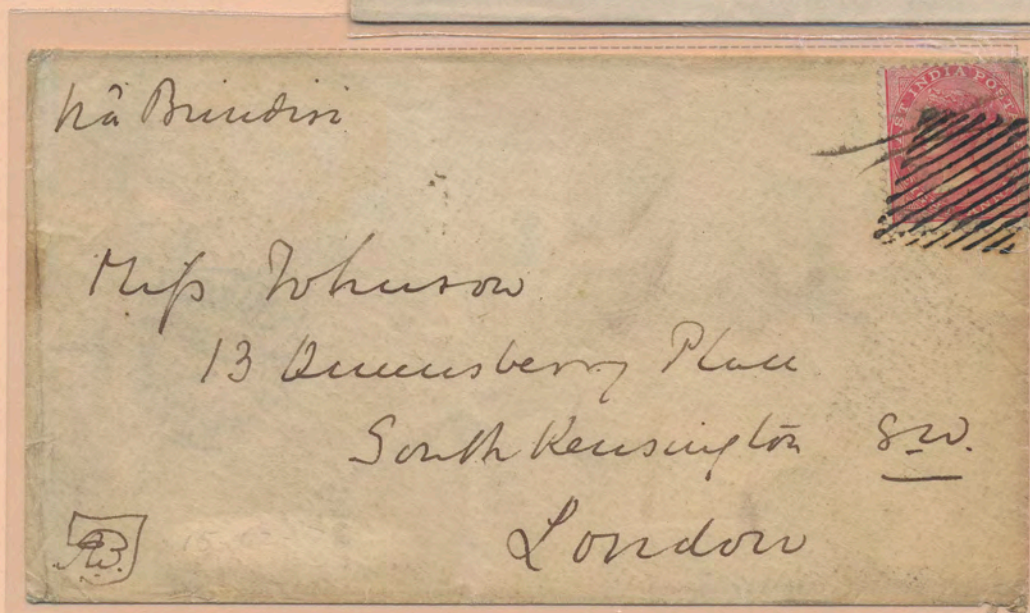 Viâ Brindisi
EAST INDIA POSTAGE
Miss Johnson
13 Queensberry Place
South Kensington S.W.
London